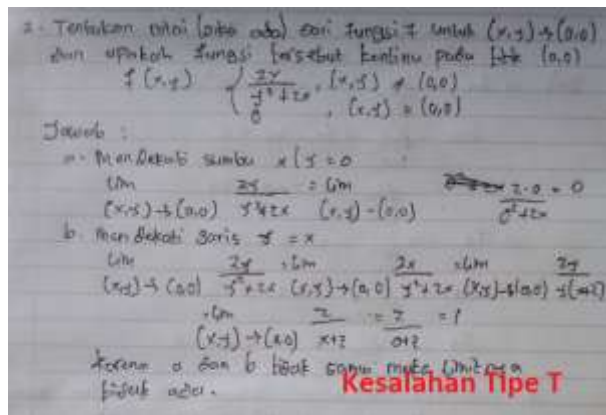 2. Tentukan nilai (jika ada) dari fungsi f untuk (x,y) → (0,0)
dan apakah fungsi tersebut kontinu pada titik (0,0)
f (x,y) { 2y / y² + 2x , (x,y) ≠ (0,0)
0 , (x,y) = (0,0)
Jawab :
a. Mendekati sumbu x | y = 0
lim (x,y) → (0,0) 2y / y²+2x = lim (x,y) → (0,0) 2.0 / 0²+2x = 0
b. Mendekati garis y = x
lim (x,y) → (0,0) 2y / y²+2x = lim (x,y) → (0,0) 2x / y²+2x = lim (x,y) → (0,0)
= lim (x,y) → (0,0) 2 / x+2 = 2 / 0+2 = 1
Karena a dan b tidak sama maka limitnya
tidak ada.
Kesalahan Tipe T